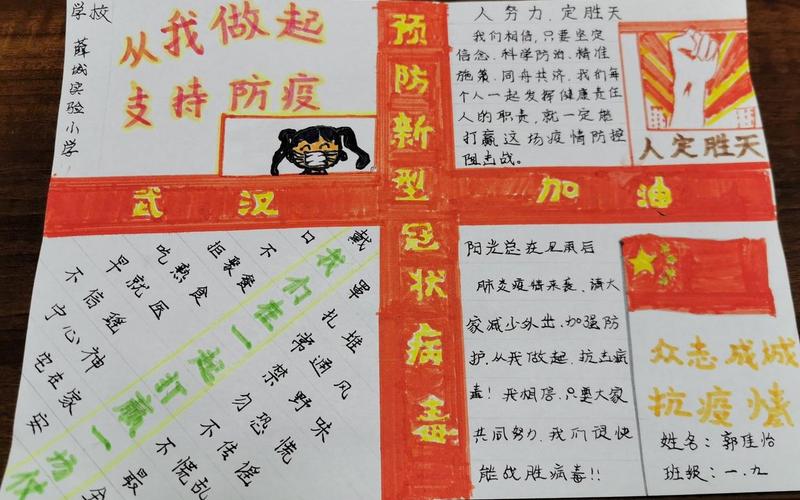 学校
薛城实验小学
从我做起
支持防疫
预防新型冠状病毒
武汉 加油
人努力,定胜天
我们相信,只要坚定
信念、科学防治、精准
施策、同舟共济,我们每
个人一起发挥健康责任
人的职责,就一定能
打赢这场疫情防控
阻击战。
人定胜天
戴口罩
不扎堆
拒聚餐 常通风
吃熟食 禁野味
早就医 勿恐慌
不信谣 不传谣
宁心神 不慌乱
宅在家 最安全
我们在一起打赢一场仗
阳光总在风雨后
肺炎疫情来袭,请大
家减少外出,加强防
护,从我做起,抗击病
毒!我相信,只要大家
共同努力,我们很快
能战胜病毒!!
众志成城
抗疫情
姓名:郭佳怡
班级:一.九